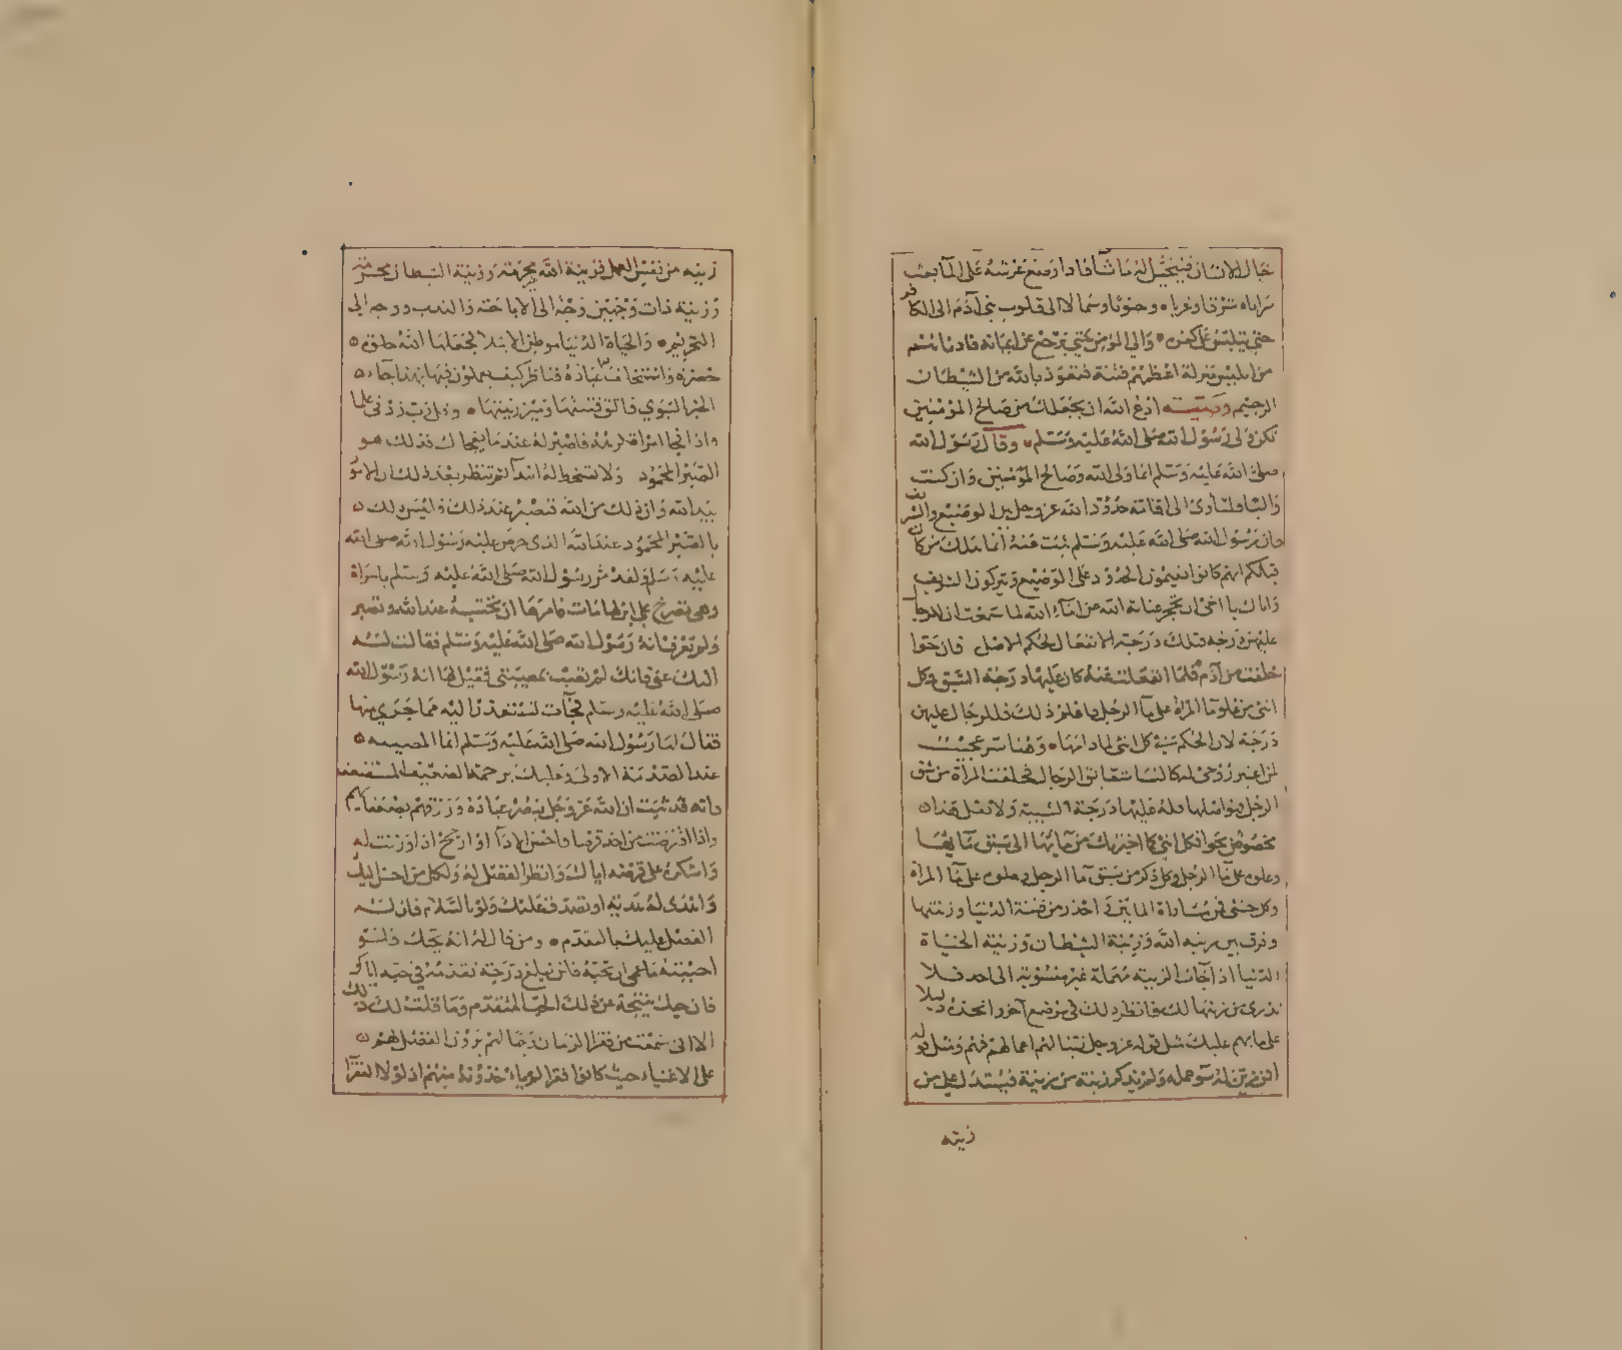 خيال الانسان فيتخيل له ما شآ فاذا وضع عرشه على المآ بعث
سراياه شرقا وغربا وجنوبا وشمالا الى قلوب بني آدم الى الكافر
حتى يثبت على كفره والى المؤمن حتى يرجع عن ايمانه فادناهم
من ابليس منزلة اعظمهم فتنة فنعوذ بالله من الشيطان
الرجيم وصية ادع الله ان يجعلك من صالح المؤمنين
تكن ولي رسول الله صلى الله عليه وسلم وقال رسول الله
صلى الله عليه وسلم انما ولي الله وصالح المؤمنين وان كنت
واليا فساوى الى اقامة حدود الله عز وجل بين الوضيع والشريف
فان رسول الله صلى الله عليه وسلم ثبت عنه انما هلك من كان
قبلكم انهم كانوا يقيمون الحدود على الوضيع ويتركون الشريف
واياك يا اخي ان تحجر عناية الله عن امآء الله لما سمعت ان للرجال
عليهن درجة فتلك درجة الانفعال لحكم الاصل فان حوا
خلقت من آدم فلما انفعلت عنه كان عليها درجة السبق فكل
انثى من علو مآ المرأة على مآ الرجل فللرجال عليهن
درجة لان الحكم كل انثى لما دامها وهنا سر عجيب
النسا شقايق الرجال فخلقت المرأة من شق
الرجل فهو اصلها فله عليها درجة السببية ولا تقل هذا
مخصوص بحوا فكل انثى كما اخبرتك من مآيها الى سبق مآيها
وعلوه على مآ الرجل وكل ذكر من سبق مآ الرجل وعلوه على مآ المرأة
وكل خنثى فمن مساواة المآيين واحذر من فتنة الدنيا وزينتها
وفرق بين زينة الله وزينة الشيطان وزينة الحياة
الدنيا اذا جآت الزينة مهملة غير منسوبة الى احد فلا
تدرى من زينها لك فانظر ذلك في موضع آخر واتخذه دليلا
على ما يهم عليك مثل قوله عز وجل زينا لهم اعمالهم فهم ومثل قوله
افمن زين له سوء عمله ولم يذكر من زينه فيستدل على من
زينه
زينه من نفس العمل فزينة الله محرمة وزينة الشيطان محرمة
وزينة ذات وجهين وجه الى الاباحة والندب ووجه الى
التحريم والحياة الدنيا موطن الابتلا فجعلها الله حلوة
خضرة واستخلف عباده فناظر كيف يعملون فيها بهذا جآء
الخبر النبوي فاتق فتنتها وميز زينتها وقل رب زدني علما
واذا فجأ امر فاصبر له عند ما يفجأك فذلك هو
الصبر المحمود ولا تتسخط له ابتدآ ثم تنظر بعد ذلك ان الامر
بيد الله وان ذلك من الله فتصبر عند ذلك فليس ذلك
بالصبر المحمود عند الله الذى حرض عليه رسول الله صلى الله
عليه وسلم ولقد مر رسول الله صلى الله عليه وسلم بامراة
وهى تصرخ على ابن لها مات فامرها ان تحتسبه عند الله وتصبر
ولم تعرف انه رسول الله صلى الله عليه وسلم فقالت له
اليك عنى فانك لم تصب بمصيبتى فقيل لها انه رسول الله
صلى الله عليه وسلم فجآت تعتذر اليه مما جرى منها
فقال لها رسول الله صلى الله عليه وسلم انما المصيبة
عند الصدمة الاولى وعليك برحمة الضعيف المستضعف
فانه قد ثبت ان الله عز وجل ينصر عباده ويرزقهم بضعفايهم
واذا اقترضت من احد قرضا فاحسن الادآ وارجح اذا وزنت له
واشكره على قرضه اياك وانظر الفضل له ولكل من احسن اليك
واهدى لك هدية او تصدق عليك ولو بالسلام فان له
الفضل عليك بالتقدم ومن قال له انه يحبك فلو
احببته ما عسى ان تحبه فلن تبلغ درجة تقدمه فى حبه اياك
فان حبك نتيجة عن ذلك الحب المتقدم وما قلت لك ذلك
الا انى سمعت من فقرا الزمان لم يروا الفضل لهم
على الاغنياء حيث كانوا فقرا لما ياخذونه منهم اذ لولا الفقرا